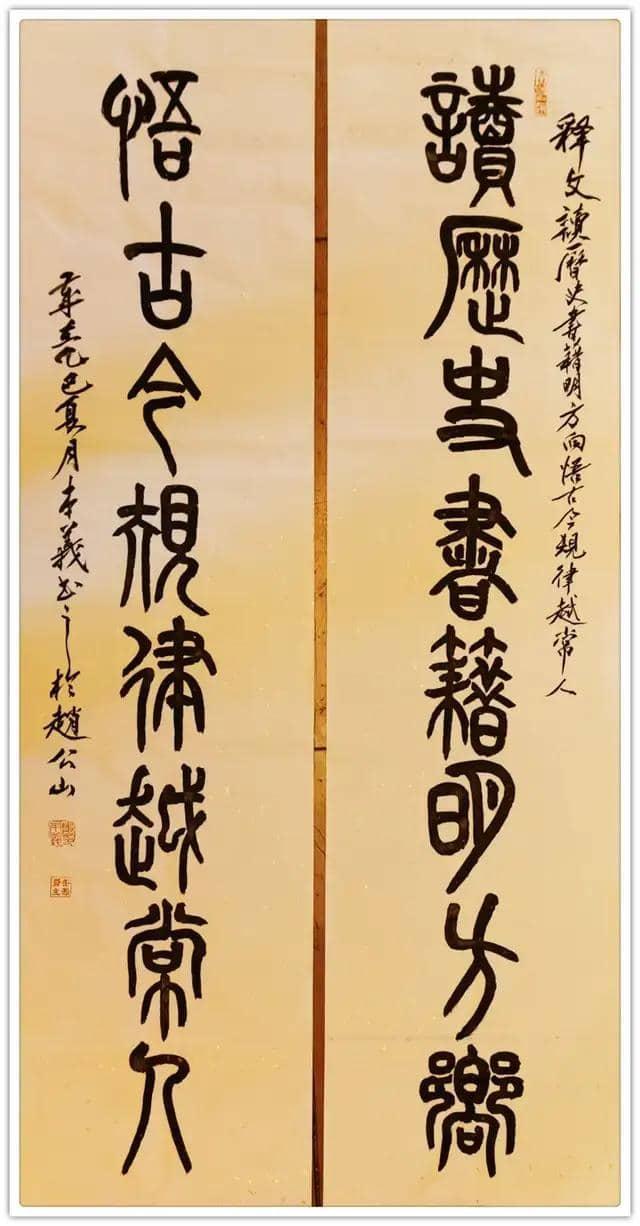 释文讀曆史書籍明方向悟古今规律越常人
讀歷史書籍明方嚮
悟古今規律越常人
歲在乙巳夏月本義书之於趙公山